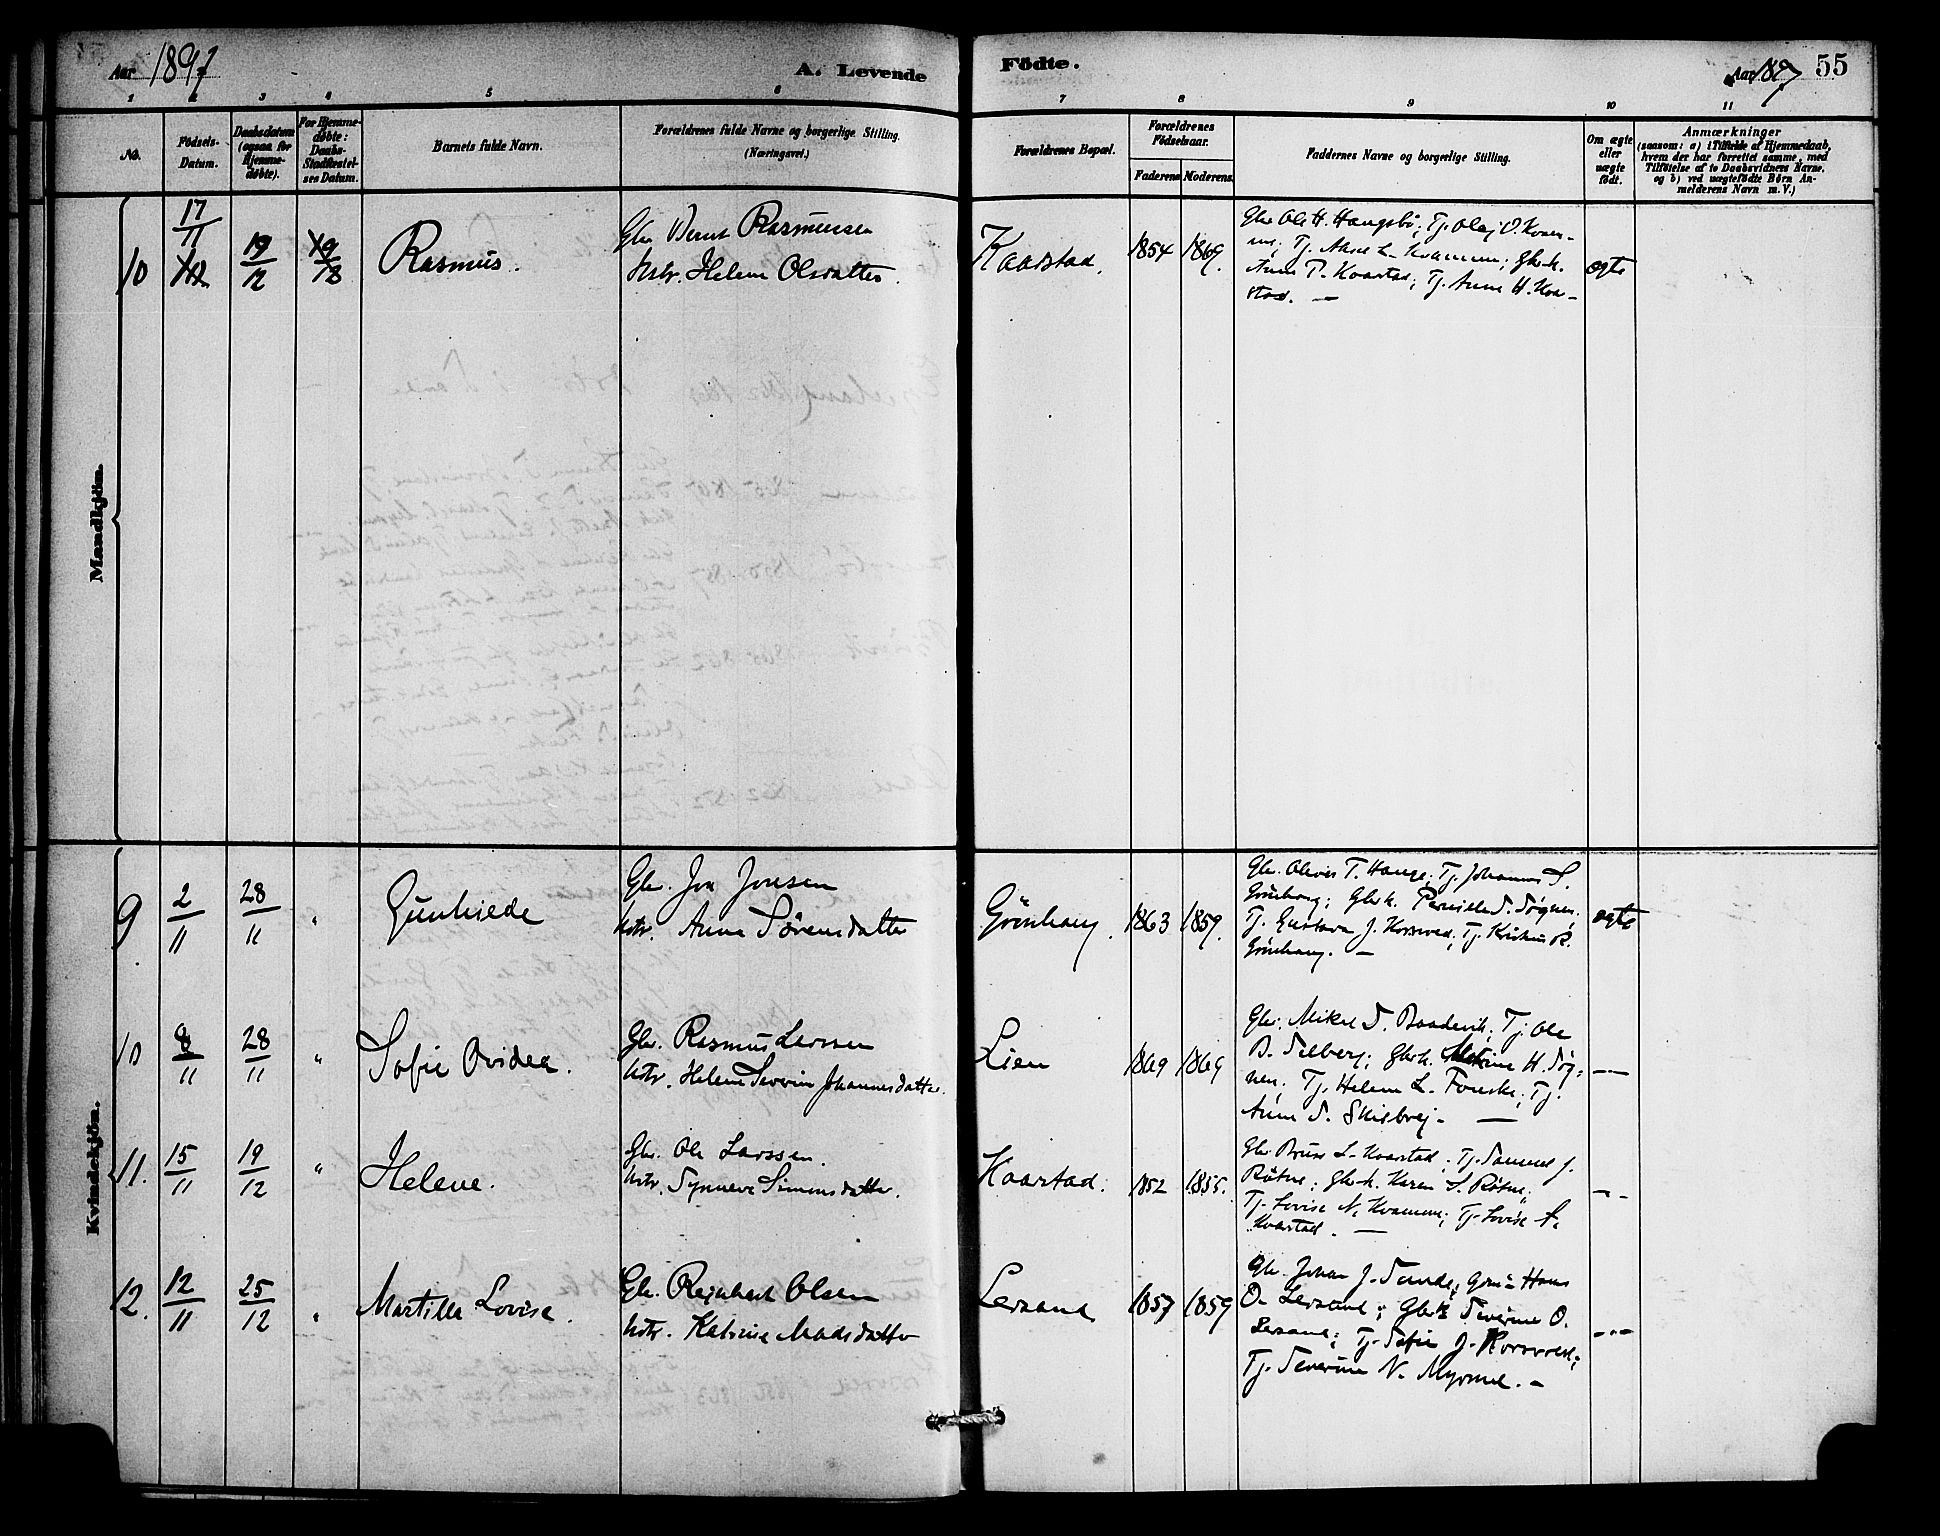 Aar 1897 A. Levende Födte. Aar 1897 55
1 2 3 4 5 6 7 8 9 10 11
No.
Födsels-
Datum.
Daabsdatum
(ogsaa for
Hjemme-
døbte).
For Hjemme-
døbte:
Daabs-
Stadfæstel-
ses Datum.
Barnets fulde Navn.
Forældrenes fulde Navne og borgerlige Stilling.
(Næringsvei.)
Forældrenes Bopæl.
Forældrenes
Fødselsaar.
Faderens Moderens.
Faddernes Navne og borgerlige Stilling.
Om ægte
eller
uægte
født.
Anmærkninger
(saasom: a) i Tilfælde af Hjemmedaab,
hvem der har forrettet samme, med
Tilføielse af to Daabsvidners Navne,
og b) ved uægtefødte Børn An-
melderens Navn m. V.)
Mandkjön.
10 17/11 19/12 Rasmus.
Gbr. Bernt Rasmussen
Hstr. Helene Olsdatter.
Kaarstad. 1854 1869.
Gbr. Ole H. Haugsbö; Tj. Olai O. Kvam-
me; Tj. L. Kvamme; Gbrk.
Anne P. Kaarstad; Tj. Anne H. Kaar-
stad. —
ægte
Kvindekjön.
9 2/11 28/11 " Gunhilde
Gbr. Jon Jonsen
Hstr. Anne Sørensdatter
Grönhaug. 1863 1859.
Gbr. Oliver T. Hauge; Tj. Johannes S.
Grönhaug; Gbrk. Pernille S. Søgnen.
Tj. Gustava J. Korsvold; Tj. R.
Grönhaug. —
ægte
10 8/11 28/11 " Sofie Ovidea.
Gbr. Rasmus Larssen
Hstr. Helene Severine Johannesdatter.
Lien 1869 1869
Gbr. Mikal S. Tj. Ole
B. Gbrk. H. Søg-
nen. Tj. Helene L. Tj.
Anne S. Skilbrej. —
—
11. 15/11 19/12 " Helene.
Gbr. Ole Larssen.
Hstr. Synneve Simonsdatter.
Kaarstad. 1852 1855.
Gbr. L. Kaarstad; Tj. Samuel J.
Røtne; Gbrk. Karen S. Røtne;
Tj. Lovise N. Kvamme; Tj. Lovise S.
Kaarstad. —
—
12. 12/11 25/12 " Martille Lovise.
Gbr. Reinhard Olsen
Hstr. Katrine Madsdatter
Lersand 1857 1859
Gbr. Johan J. Sande; Hans
O. Lersand; Gbrk. Severine O.
Lersand; Tj. Sofie J. Korsvold;
Tj. Severine N. Myrmel. —
—